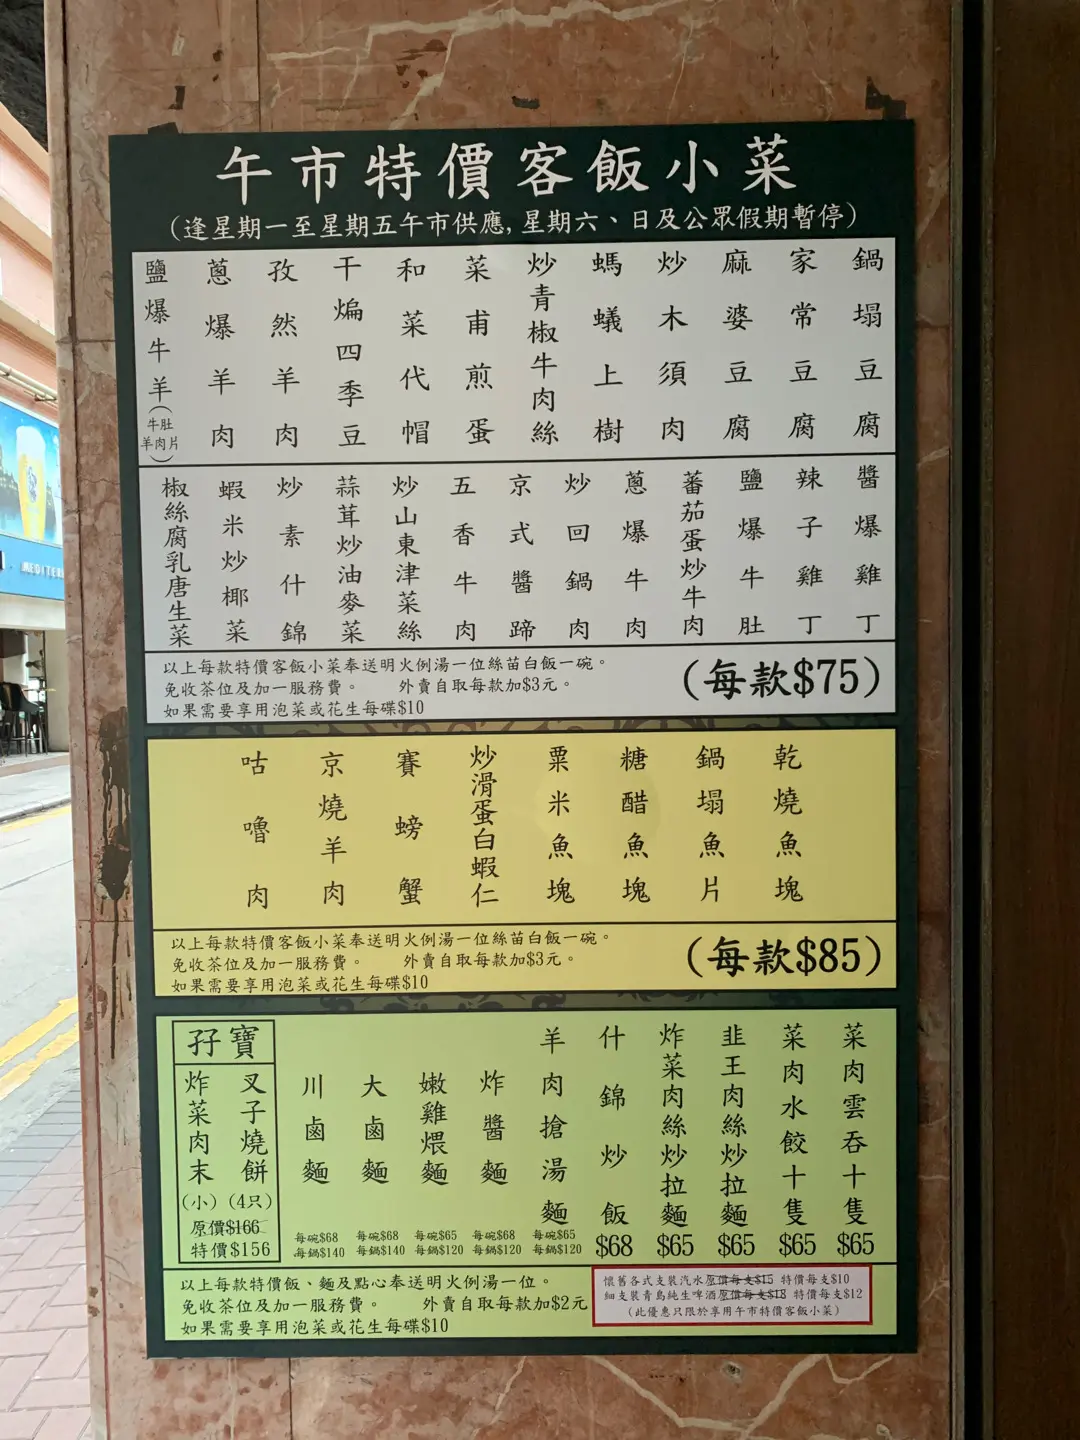 午市特價客飯小菜
(逢星期一至星期五午市供應, 星期六、日及公眾假期暫停)
鍋塌豆腐
家常豆腐
麻婆豆腐
炒木須肉
螞蟻上樹
炒青椒牛肉絲
菜甫煎蛋
和菜代帽
干煸四季豆
孜然羊肉
蔥爆羊肉
鹽爆牛羊(牛肚羊肉片)
醬爆雞丁
辣子雞丁
鹽爆牛肚
蕃茄蛋炒牛肉
蔥爆牛肉
炒回鍋肉
京式醬蹄
五香牛肉
炒山東津菜絲
蒜茸炒油麥菜
炒素什錦
蝦米炒椰菜
椒絲腐乳唐生菜
以上每款特價客飯小菜奉送明火例湯一位絲苗白飯一碗。
免收茶位及加一服務費。 外賣自取每款加$3元。
如果需要享用泡菜或花生每碟$10
(每款$75)
乾燒魚塊
鍋塌魚片
糖醋魚塊
粟米魚塊
炒滑蛋白蝦仁
賽螃蟹
京燒羊肉
咕嚕肉
以上每款特價客飯小菜奉送明火例湯一位絲苗白飯一碗。
免收茶位及加一服務費。 外賣自取每款加$3元。
如果需要享用泡菜或花生每碟$10
(每款$85)
菜肉雲吞十隻
$65
菜肉水餃十隻
$65
韭王肉絲炒拉麵
$65
炸菜肉絲炒拉麵
$65
什錦炒飯
$68
羊肉搶湯麵
每碗$65
每鍋$120
炸醬麵
每碗$68
每鍋$120
嫩雞煨麵
每碗$65
每鍋$120
大鹵麵
每碗$68
每鍋$140
川鹵麵
每碗$68
每鍋$140
孖寶
叉子燒餅
(4只)
炸菜肉末
(小)
原價$166
特價$156
以上每款特價飯、麵及點心奉送明火例湯一位。
免收茶位及加一服務費。 外賣自取每款加$2元
如果需要享用泡菜或花生每碟$10
懷舊各式支裝汽水原價每支$15 特價每支$10
細支裝青島純生啤酒原價每支$18 特價每支$12
(此優惠只限於享用午市特價客飯小菜)